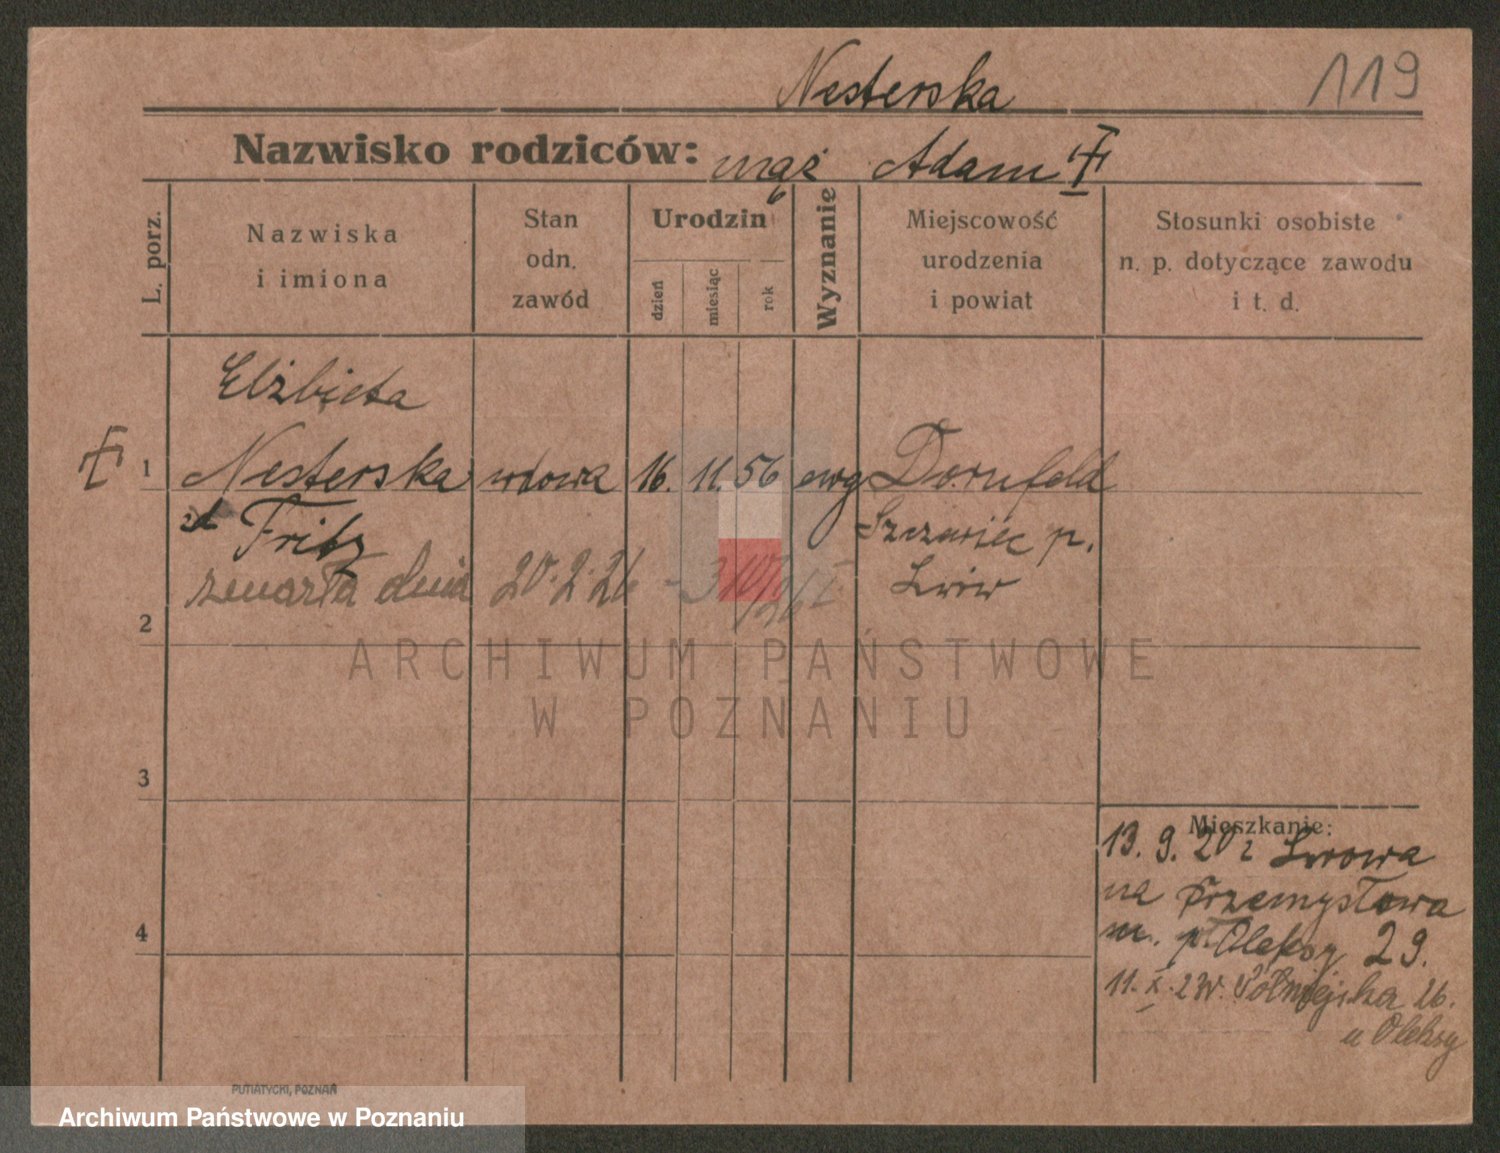 Nesterska
119
Nazwisko rodziców: mąż Adam
L. porz.
Nazwiska
i imiona
Stan
odn.
zawód
Urodzin
dzień
miesiąc
rok
Wyznanie
Miejscowość
urodzenia
i powiat
Stosunki osobiste
n. p. dotyczące zawodu
i t. d.
Elżbieta
1 Nesterska wdowa 16. 11. 56 ewg Dornfeld
Fritz Szczerzec p.
zmarła dnia 20.2.26 Lwów
2
ARCHIWUM PAŃSTWOWE
W POZNANIU
3
4
Mieszkanie:
13. 9. 20 z Lwowa
na Przemysłowa
29.
26.
u Oleksy
PUTIATYCKI, POZNAŃ
Archiwum Państwowe w Poznaniu